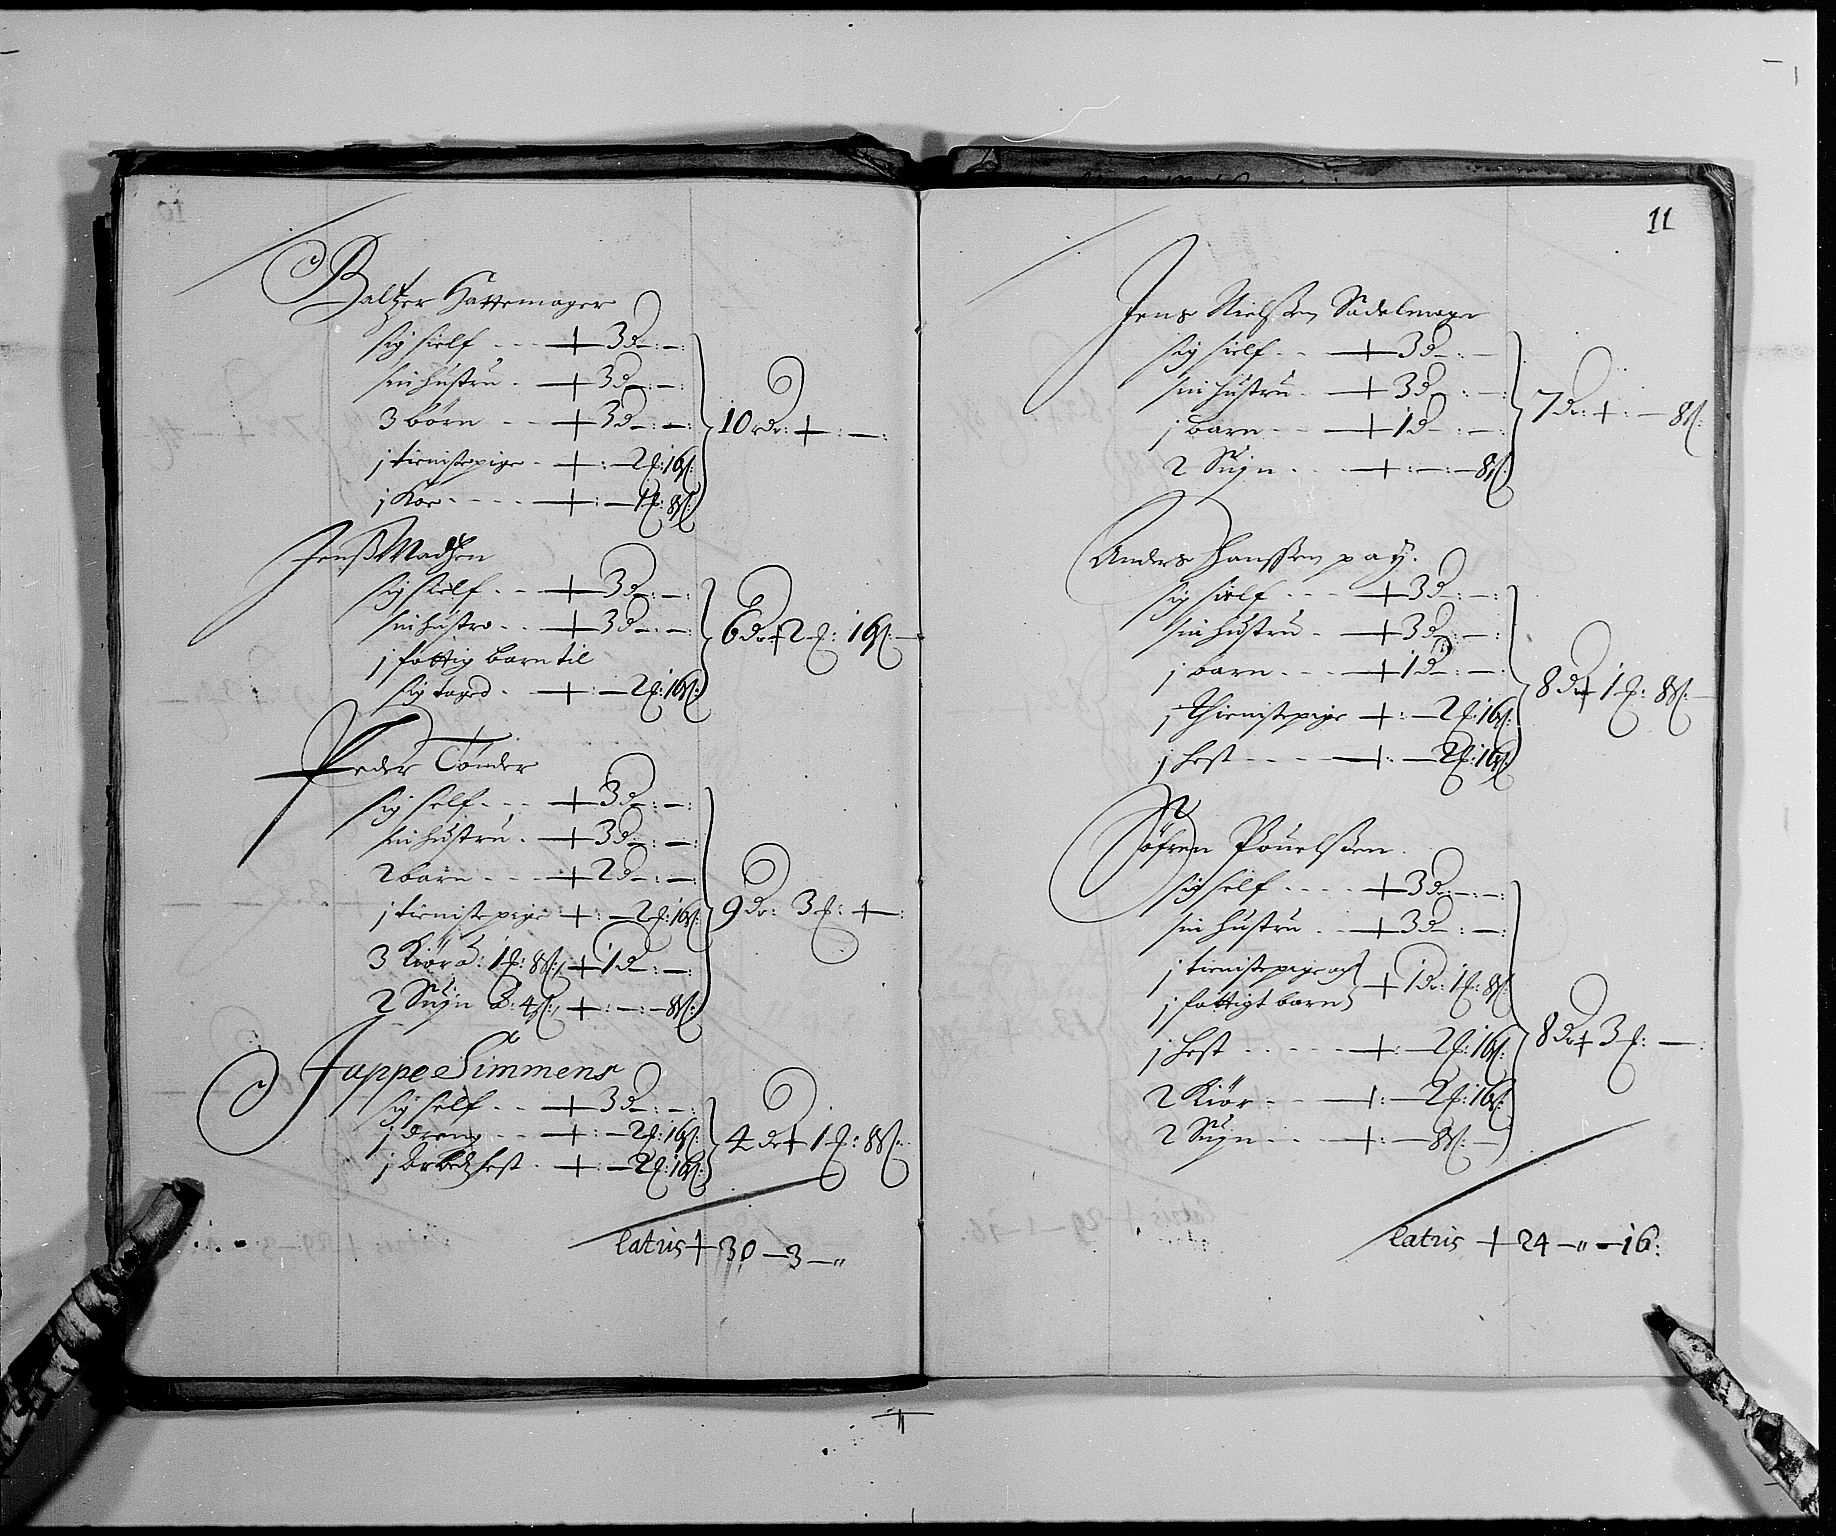 Baltzer Hattemager
sig sielf - - - + 3 d – : – :
sin hustru - + 3 d – : – :
3 börn - - + 3 d – : – :
j tienistepige - + : – 2 ƶ: 16 ß:
j Koe - - - - + : – 1 ƶ: 8 ß:
10 rdr: + : – :
Jenß Madtzen
sig sielf - - + 3 d – : – :
sin hustro - - + 3 d – : – :
j fattig barn til
sig taged - + : – 2 ƶ: 16 ß:
6 dr + 2 ƶ: 16 ß: –
Peder Tönder
sig self - - - + 3 d – : – :
sin hustru - + 3 d – : – :
2 barn - - - + 2 d – : – :
j tieniste pige + : – 2 ƶ: 16 ß:
3 Kiör a: 1 ƶ: 8 ß: + 1 d – : – :
2 Suyn a: 4 ß: + : – : – 8 ß:
9 dr: 3 ƶ: + – :
Jappe Simmens
sig self - - + 3 d – : – :
j dreng - - + : – 2 ƶ: 16 ß:
j Arbedtz hest - + : – 2 ƶ: 16 ß:
4 dr + 1 ƶ: 8 ß:
latus + 30 – 3 – "
11
Jens Nielssen Sadelmager
sig sielf - - + 3 d – : –
sin hustru - + 3 d – : – :
j barn - - - + 1 d – : – :
2 Suyn - - - + : – : – 8 ß:
7 dr: + : – 8 ß:
Anders Hanssen pay.
sig sielf - - - + 3 d – : – :
sin hustru - + 3 d – : – :
j barn - - - + 1 d – : – :
j thienistepige + : – 2 ƶ: 16 ß:
j hest - - - - + : – 2 ƶ: 16 ß:
8 dr + 1 ƶ: 8 ß: –
Söfren Pouelssen
sig self - - - - + 3 d – : – :
sin hustru - - + 3 d – : – :
j tienistepige og
j fattigt barn + 1 dr: 1 ƶ: 8 ß:
j hest - - - - - + : – 2 ƶ: 16 ß:
2 Kiör - - - + : – 2 ƶ: 16 ß:
2 Suyn - - - + : – 8 ß: –
8 dr + 3 ƶ: – :
latus + 24 – " – 16: